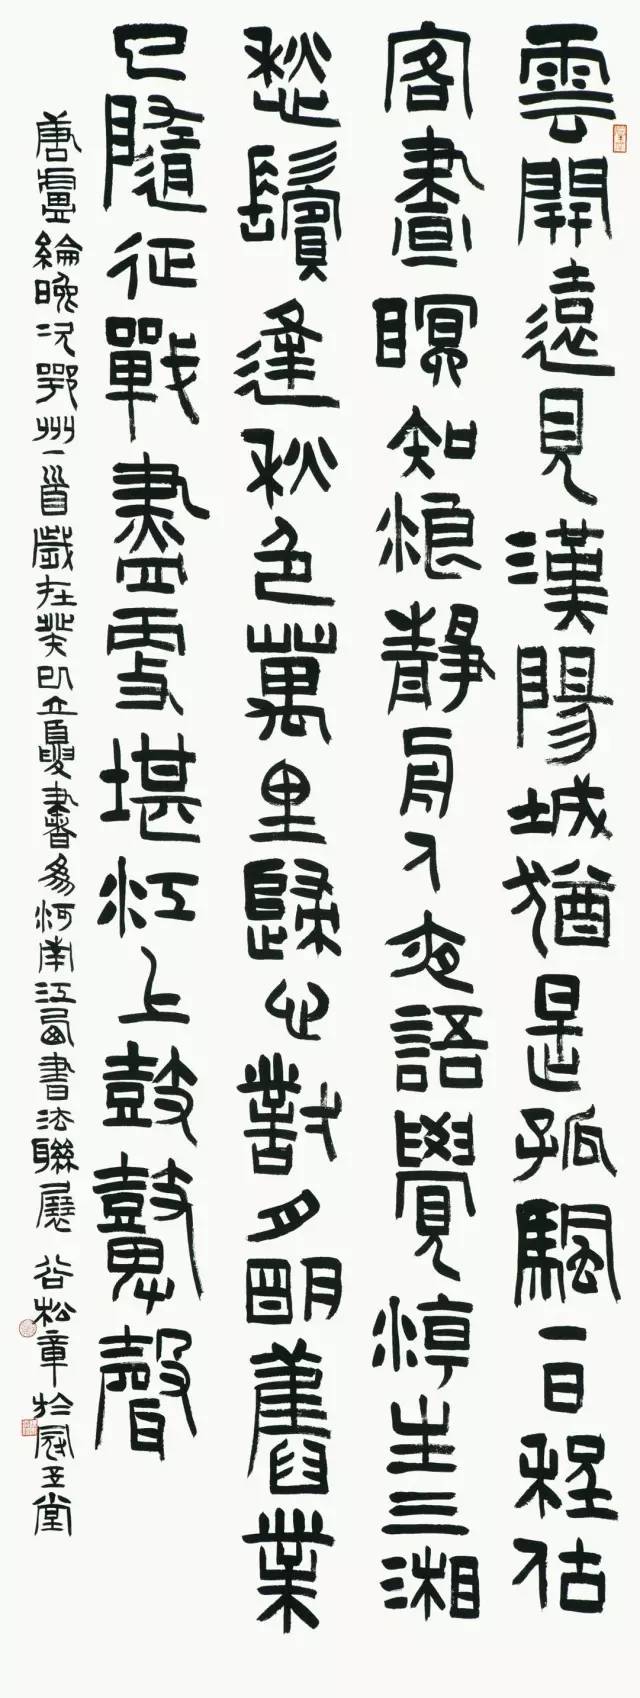 雲開遠見漢陽城猶是孤颿一日程估
客晝瞑知浪靜舟人夜語覺潮生三湘
愁鬢逢秋色萬里歸心對月明舊業
已隨征戰盡更堪江上鼓鼙聲
唐盧綸晚次鄂州一首歲在癸巳立夏書為河南江西書法聯展 谷松章於冠五堂